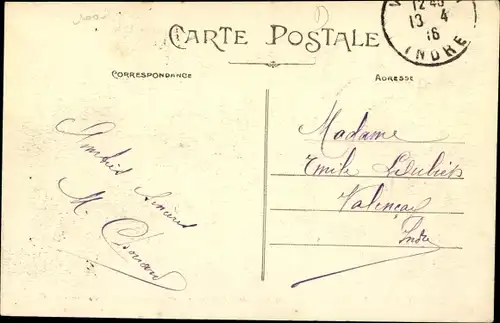 CARTE POSTALE
12 40
13 4
16
INDRE
CORRESPONDANCE
ADRESSE
Amitiés sincères
M.
Madame
Emile
Valençay
Indre